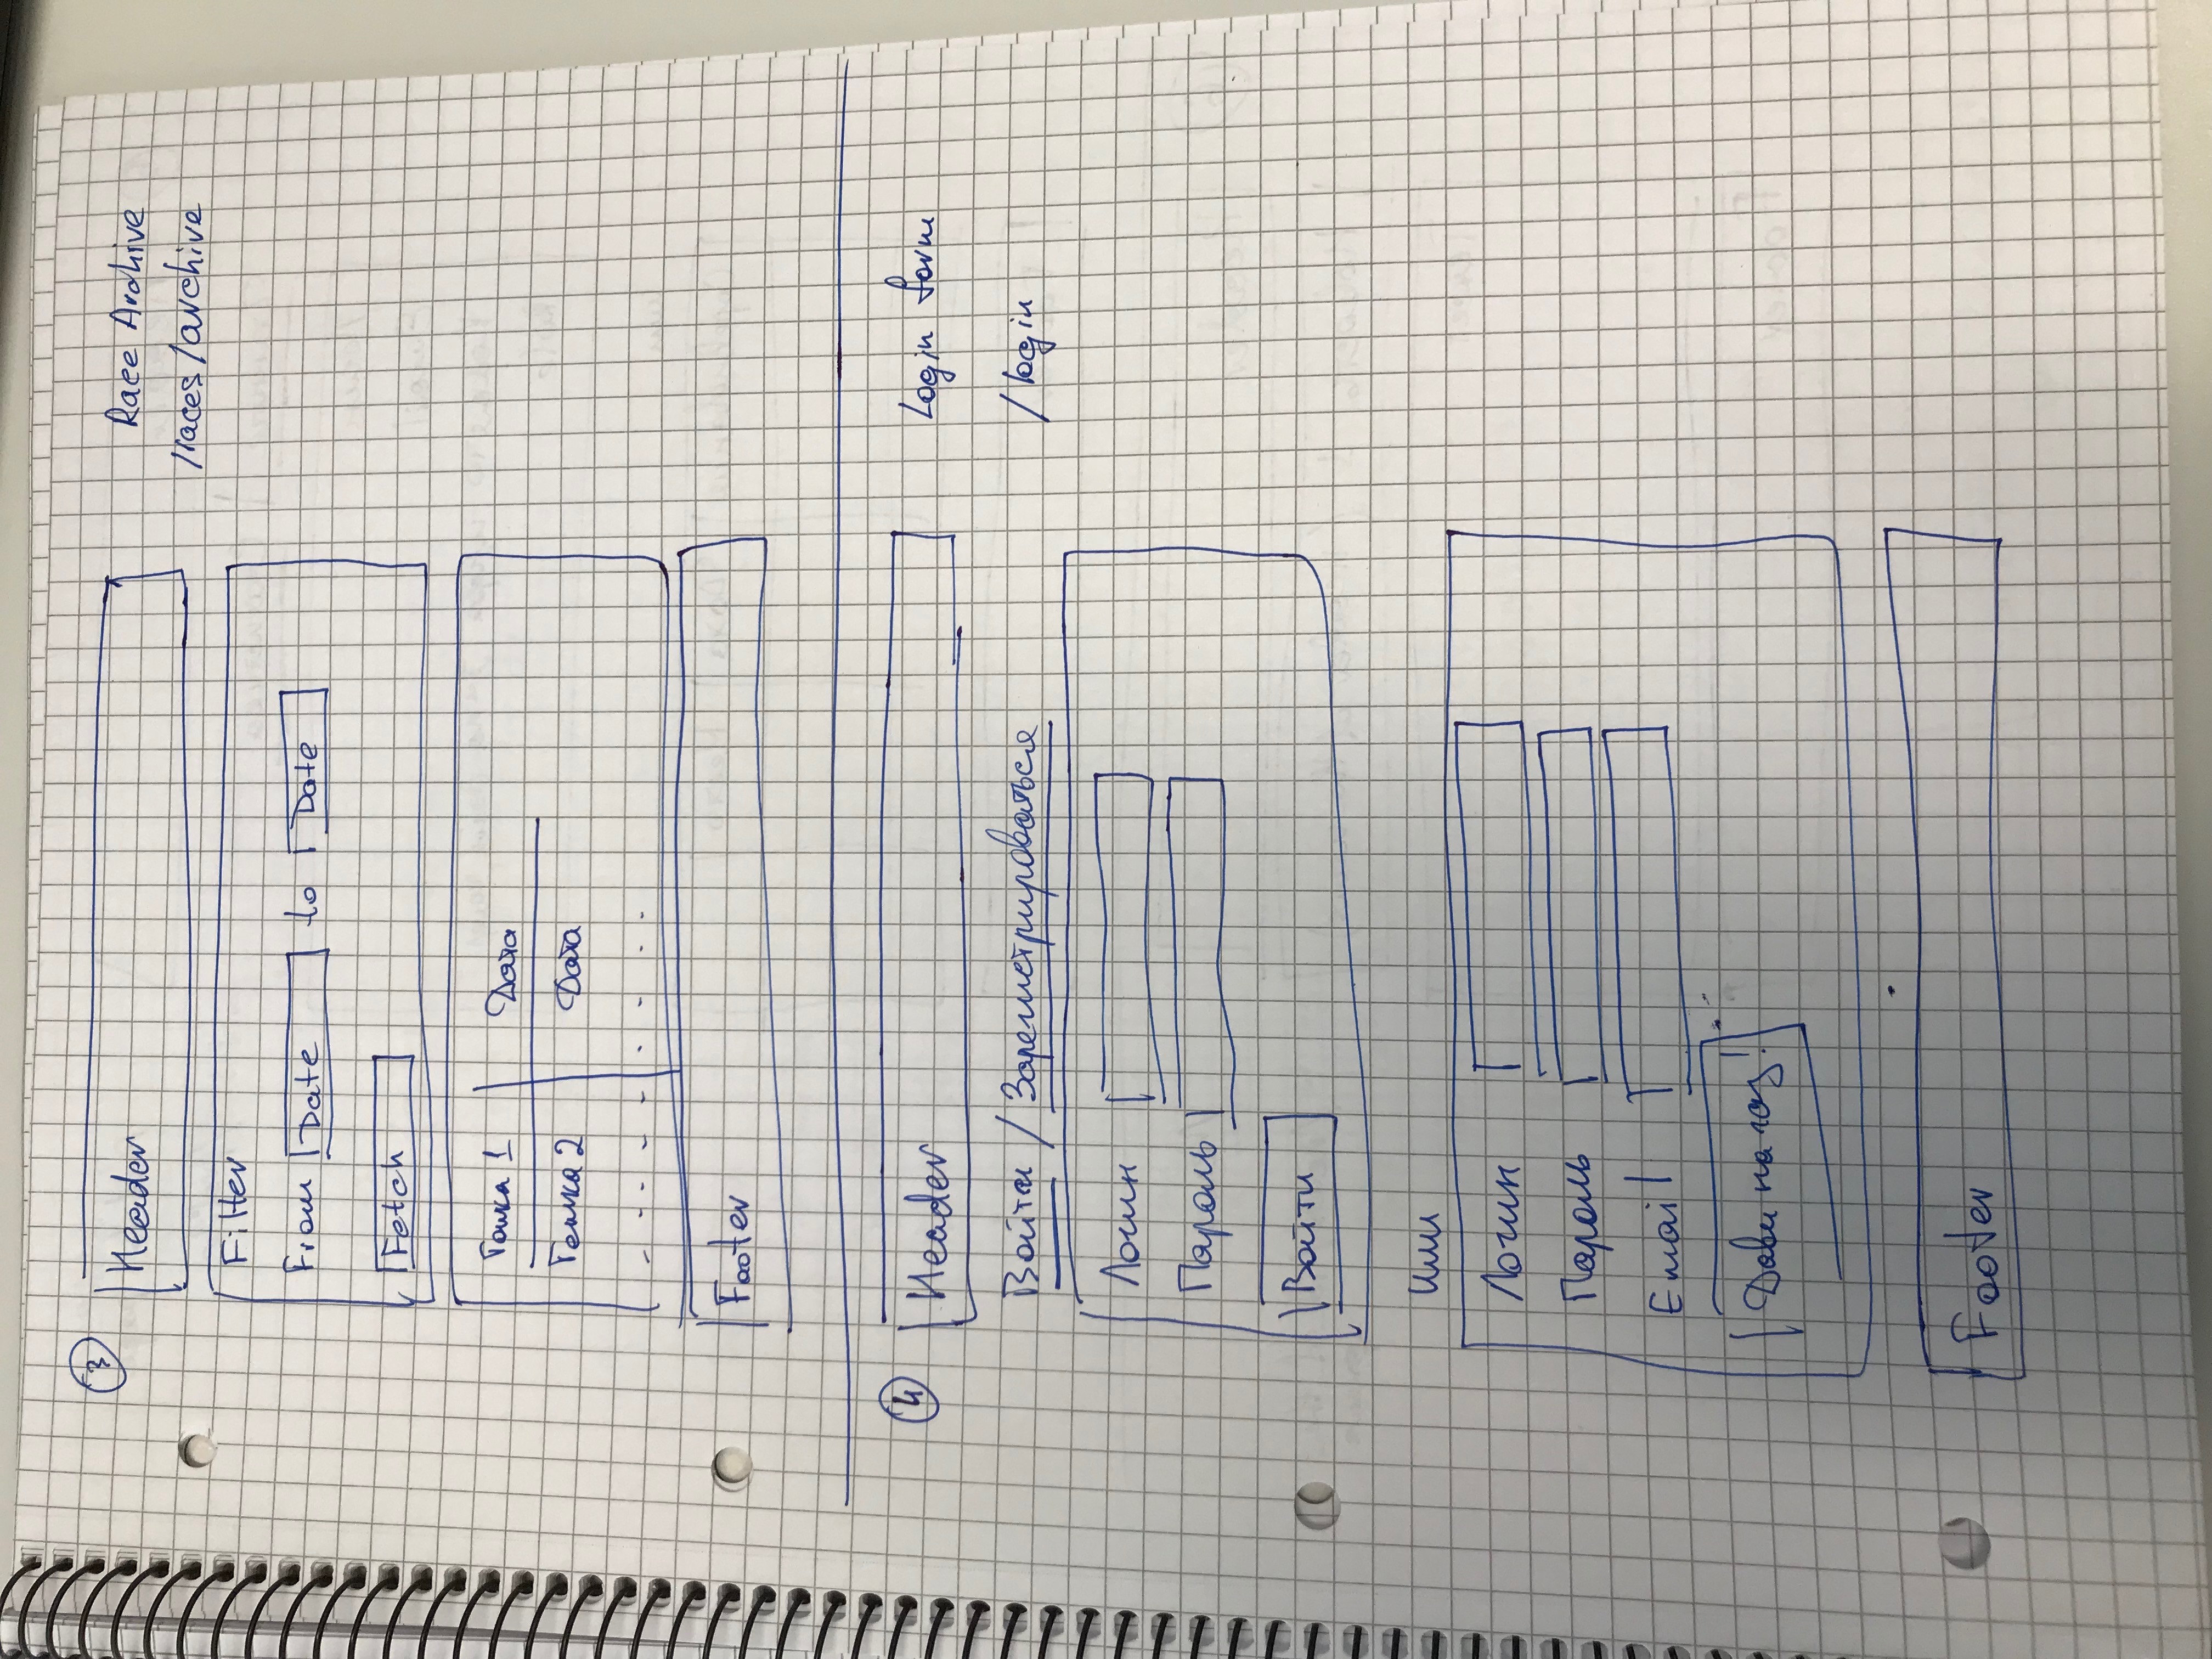 3
Header
Race Archive
/races/archive
Filter
From Date to Date
Fetch
Гонка 1 Дата
Гонка 2 Дата
Footer
4
Header
Login form
Войти / Зарегистрироваться
/login
Логин
Пароль
Войти
или
Логин
Пароль
Email
Дави на газ!
Footer